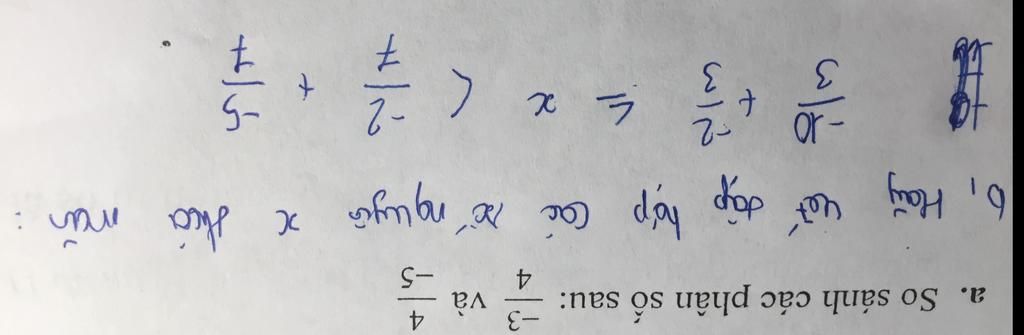 a. So sánh các phân số sau: -3/4 và 4/-5
b, Hãy viết tập hợp các số nguyên x thỏa mãn :
-10/3 + -2/3 ≤ x < -2/7 + -5/7